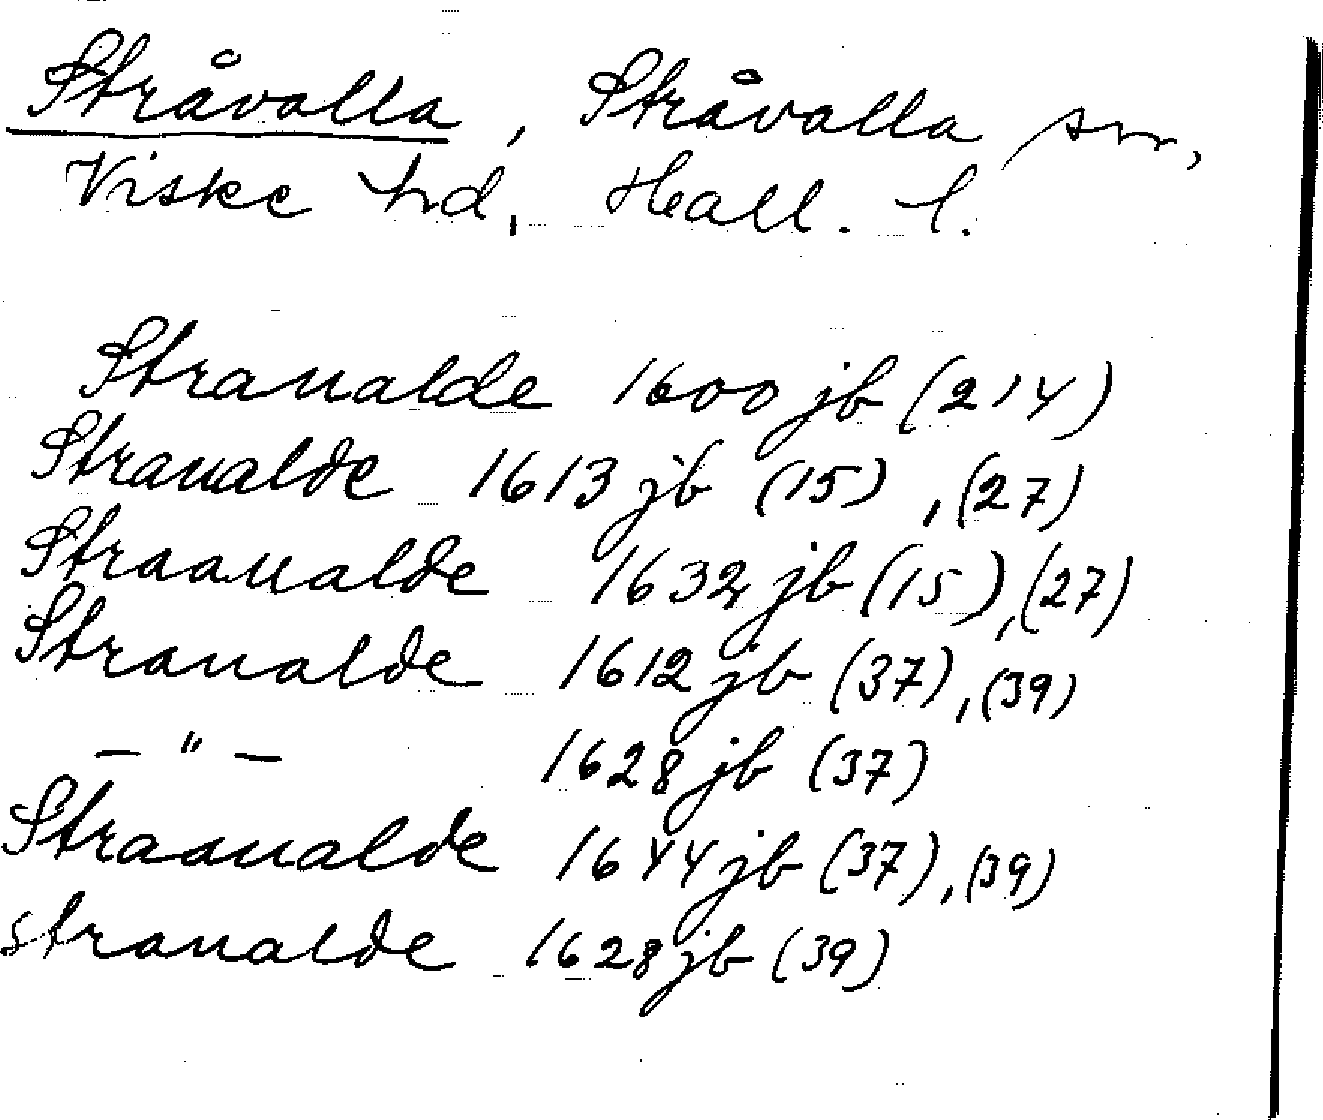 Stråvalla, Stråvalla sn,
Viske hd, Hall. l.
Straualde 1600 jb (214)
Straualde 1613 jb (15), (27)
Straaualde 1632 jb (15), (27)
Straualde 1612 jb (37), (39)
— " — 1628 jb (37)
Straaualde 1644 jb (37), (39)
straualde 1628 jb (39)